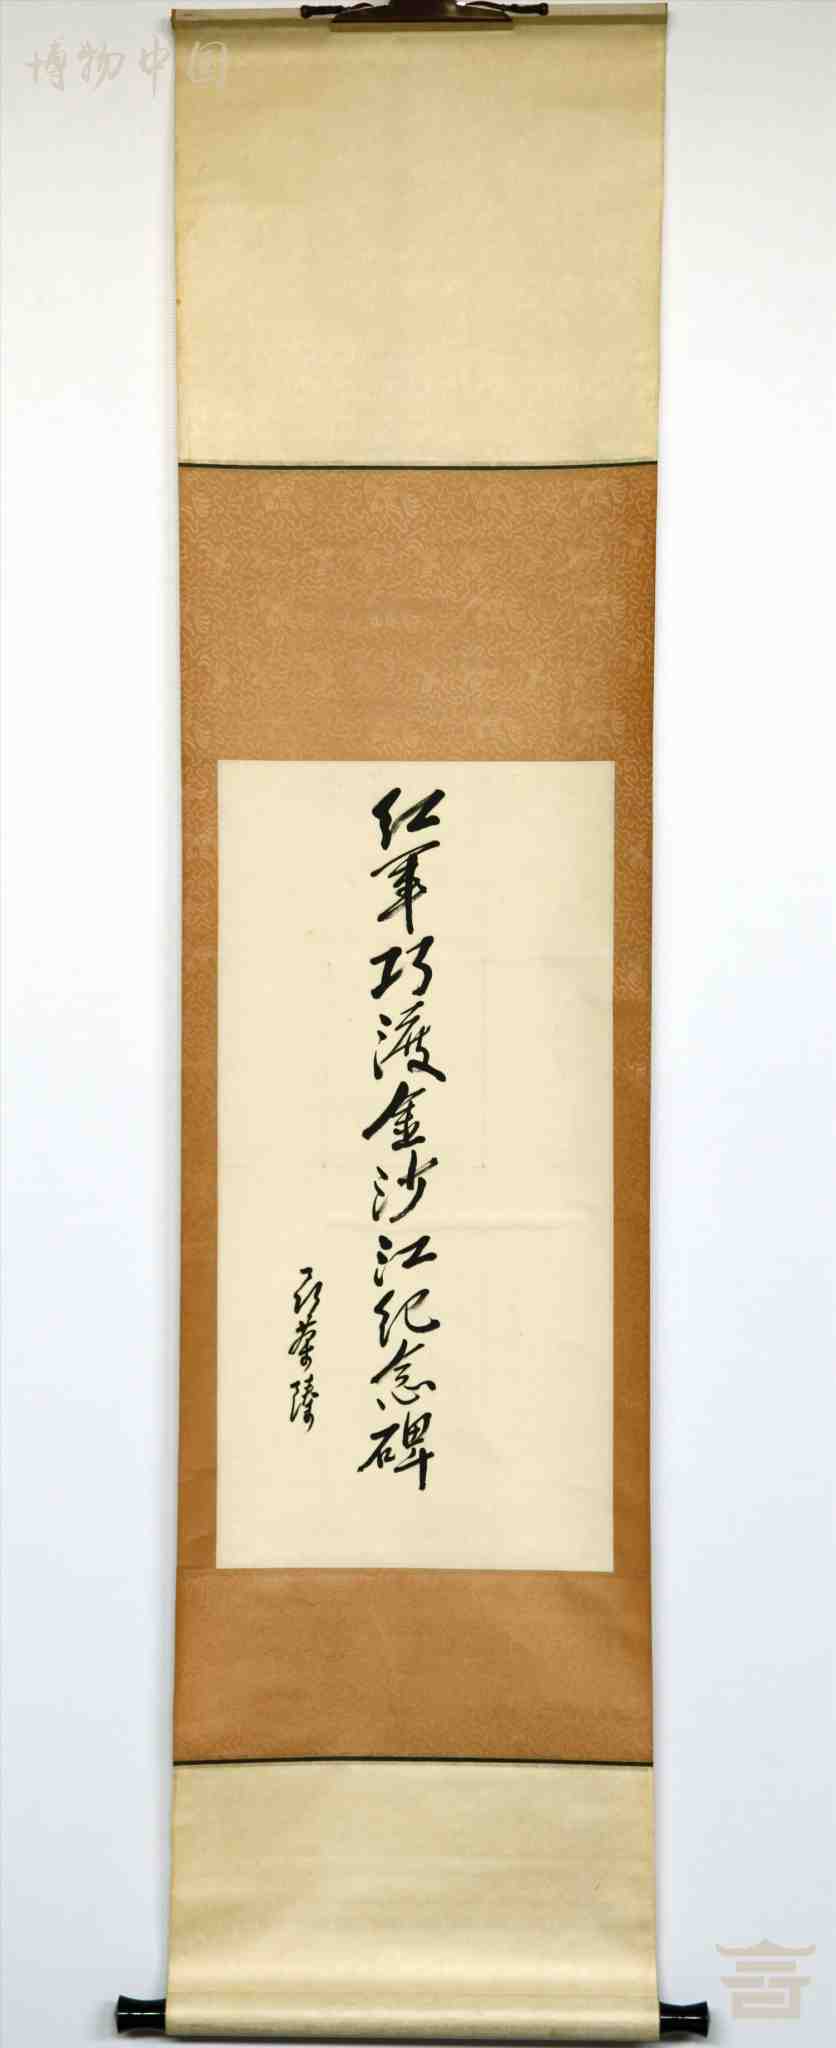 博物中国
红军巧渡金沙江纪念碑
聂荣臻